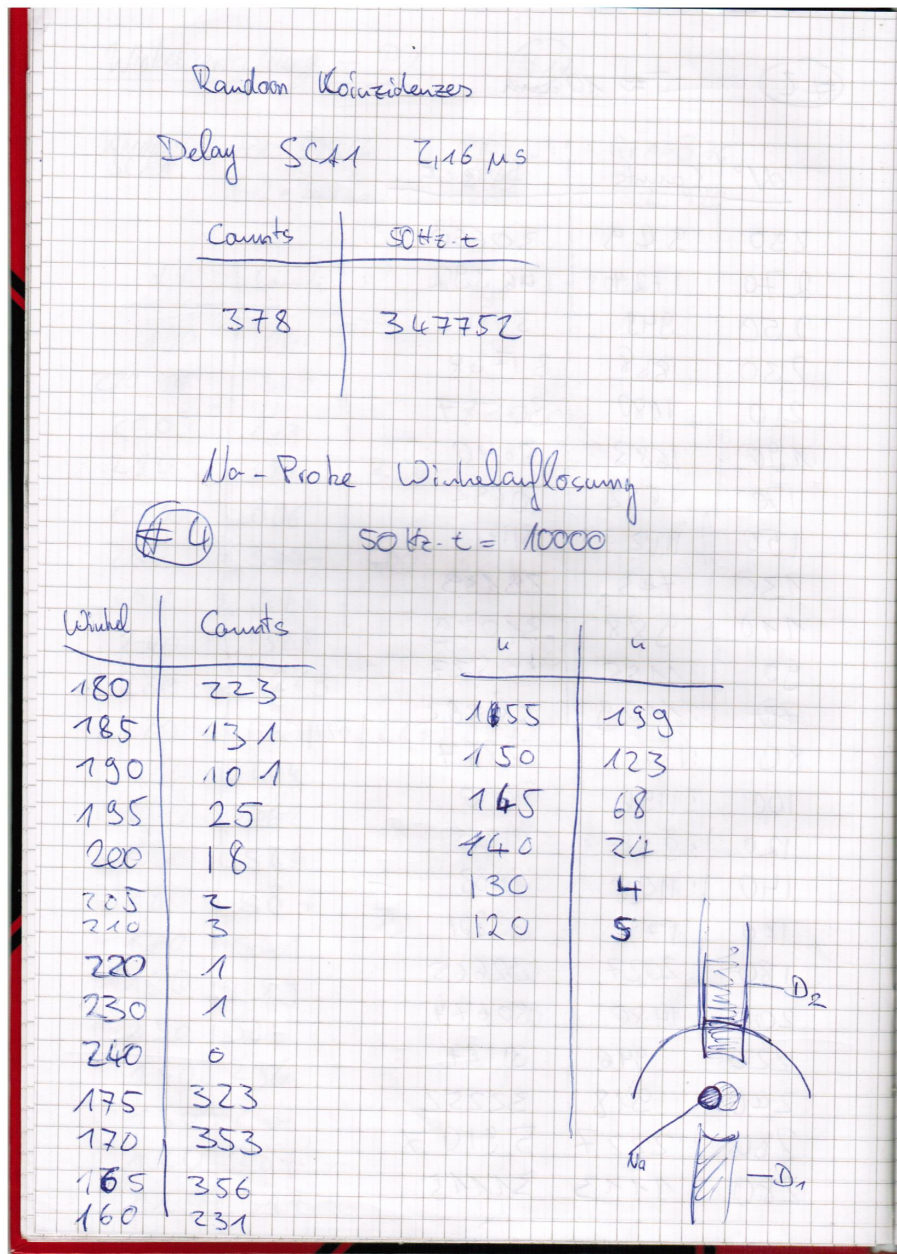 Random Koinzidenzen
Delay SCA1 2,16 µs
Counts 50Hz·t
378 347752
Na-Probe Winkelauflösung
#4 50Hz·t = 10000
Winkel Counts
180 223
185 131
190 101
195 25
200 18
205 2
210 3
220 1
230 1
240 0
175 323
170 353
165 356
160 231
" "
155 199
150 123
145 68
140 24
130 4
120 5
D2
Na
D1